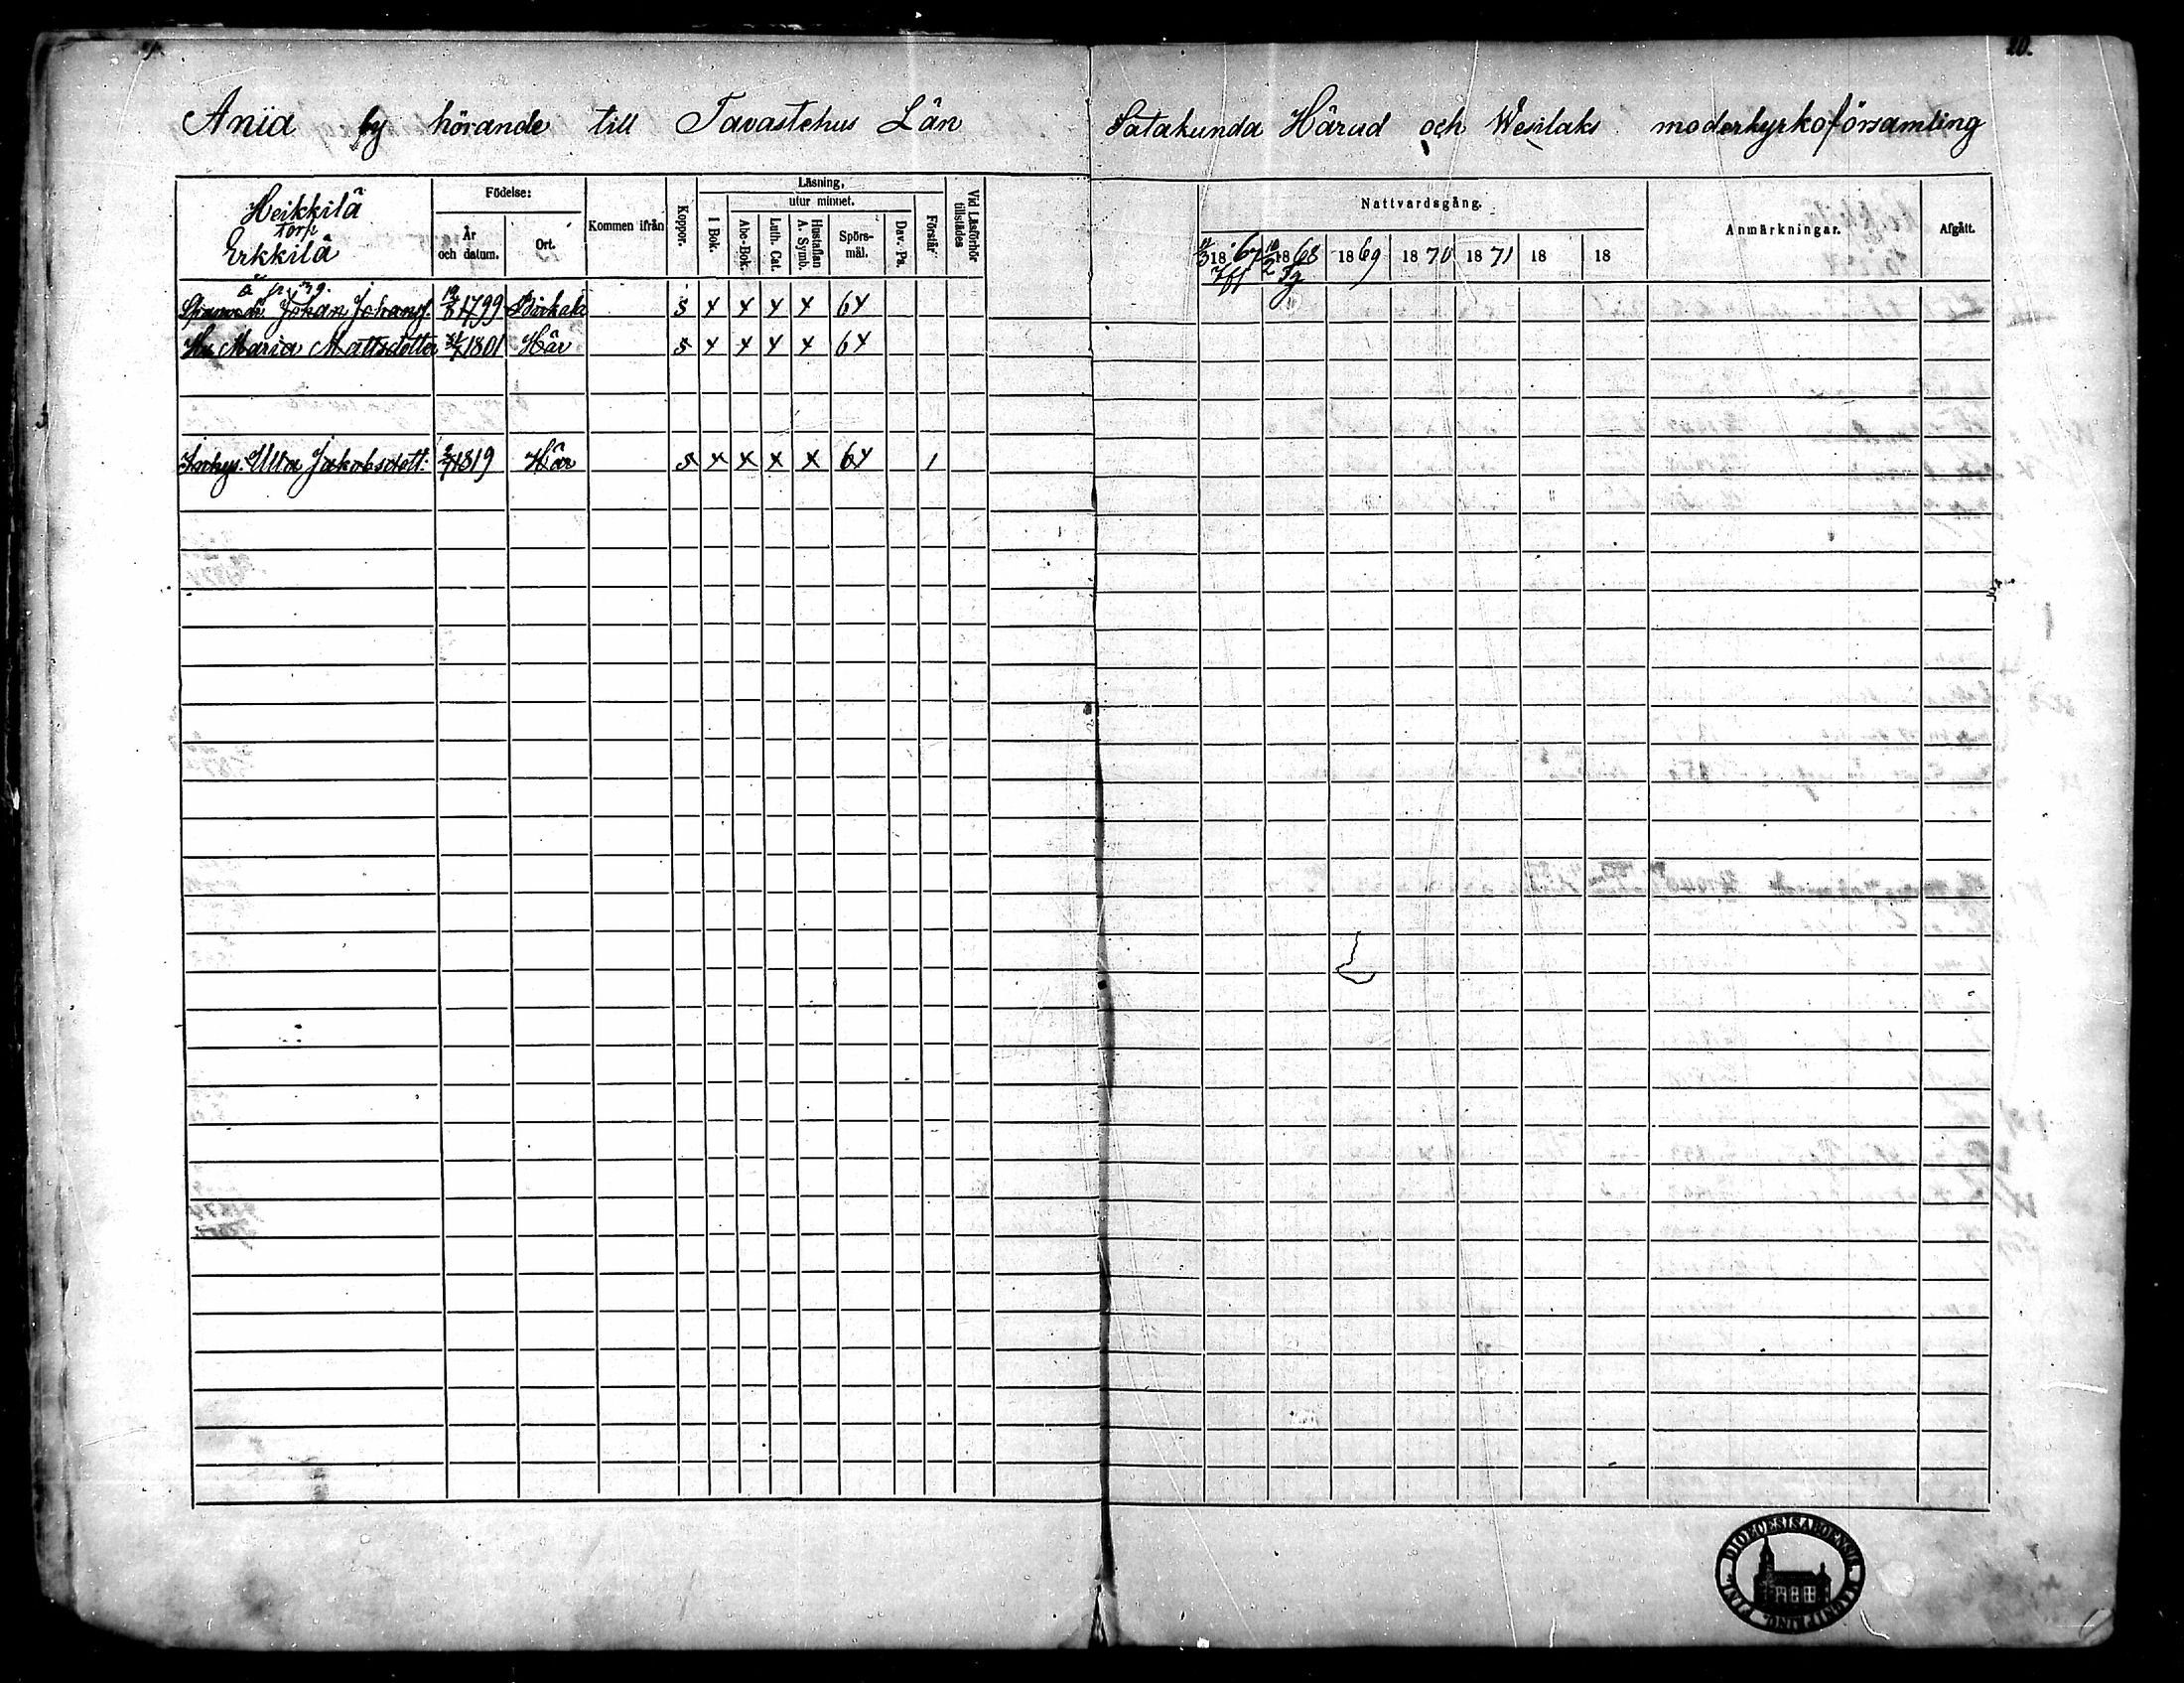 9.
10.
Ania by hörande till Tavastehus Län Satakunda Härad och Wesilaks moderkyrkoförsamling
Heikkilä
torp
Erkkilä
Födelse:
År och datum.
Ort.
Kommen ifrån
Koppor.
Läsning,
utur minnet.
I Bok.
Abc-Bok.
Luth. Cat.
Hustaflan A. Symb.
Spörs-mål.
Dav. Ps.
Förstår
Vid Läsförhör tillstädes
Nattvardsgång.
1867 1868 1869 1870 1871 18 18
Anmärkningar.
Afgått.
Johan Johansf. 1799 Birkala s x x x x 64
Hu Maria Mattsdotter 1801 Här s x x x x 64
Inhys. Ulla Jakobsdott. 1819 Här s x x x x 64 1
DIOECESIS ABOENSIS